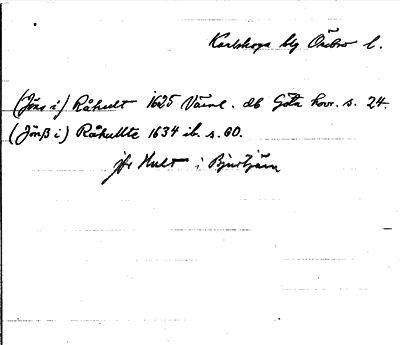 Karlskoga bg Örebro l.
(Jöns i) Råhult 1625 Värml. db Göta hovr. s. 24.
(Jönß i) Råhullte 1634 ib. s. 60.
jfr Hult i Bjurtjärn